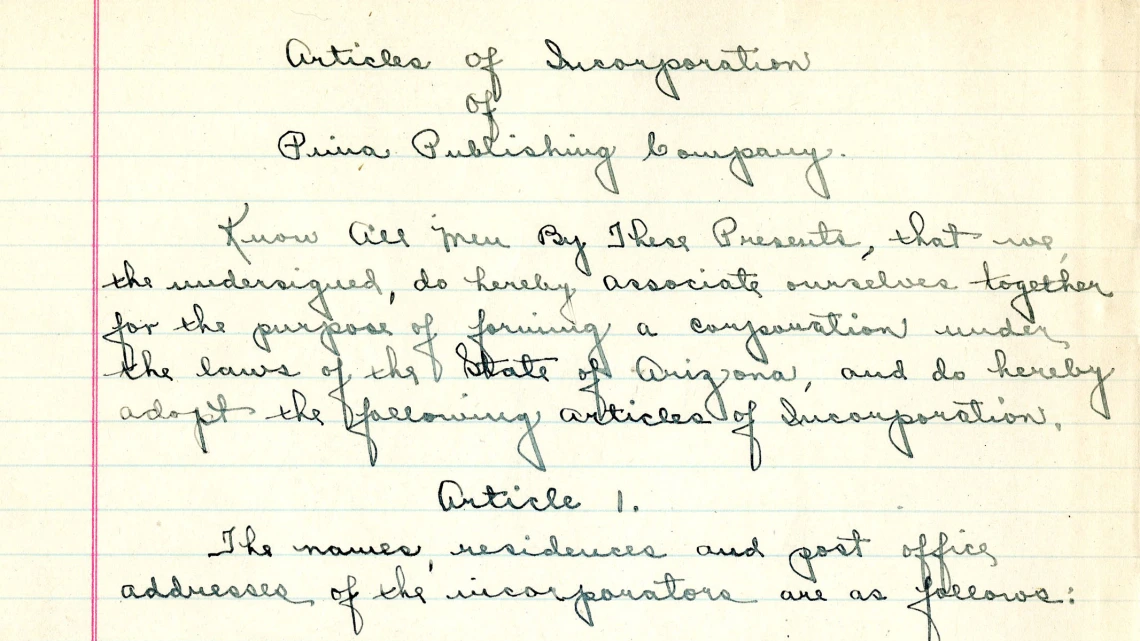 Articles of Incorporation
of
Pima Publishing Company.
Know All Men By These Presents, that we,
the undersigned, do hereby associate ourselves together
for the purpose of forming a corporation under
the laws of the State of Arizona, and do hereby
adopt the following Articles of Incorporation.
Article 1.
The names, residences and post office
addresses of the incorporators are as follows: